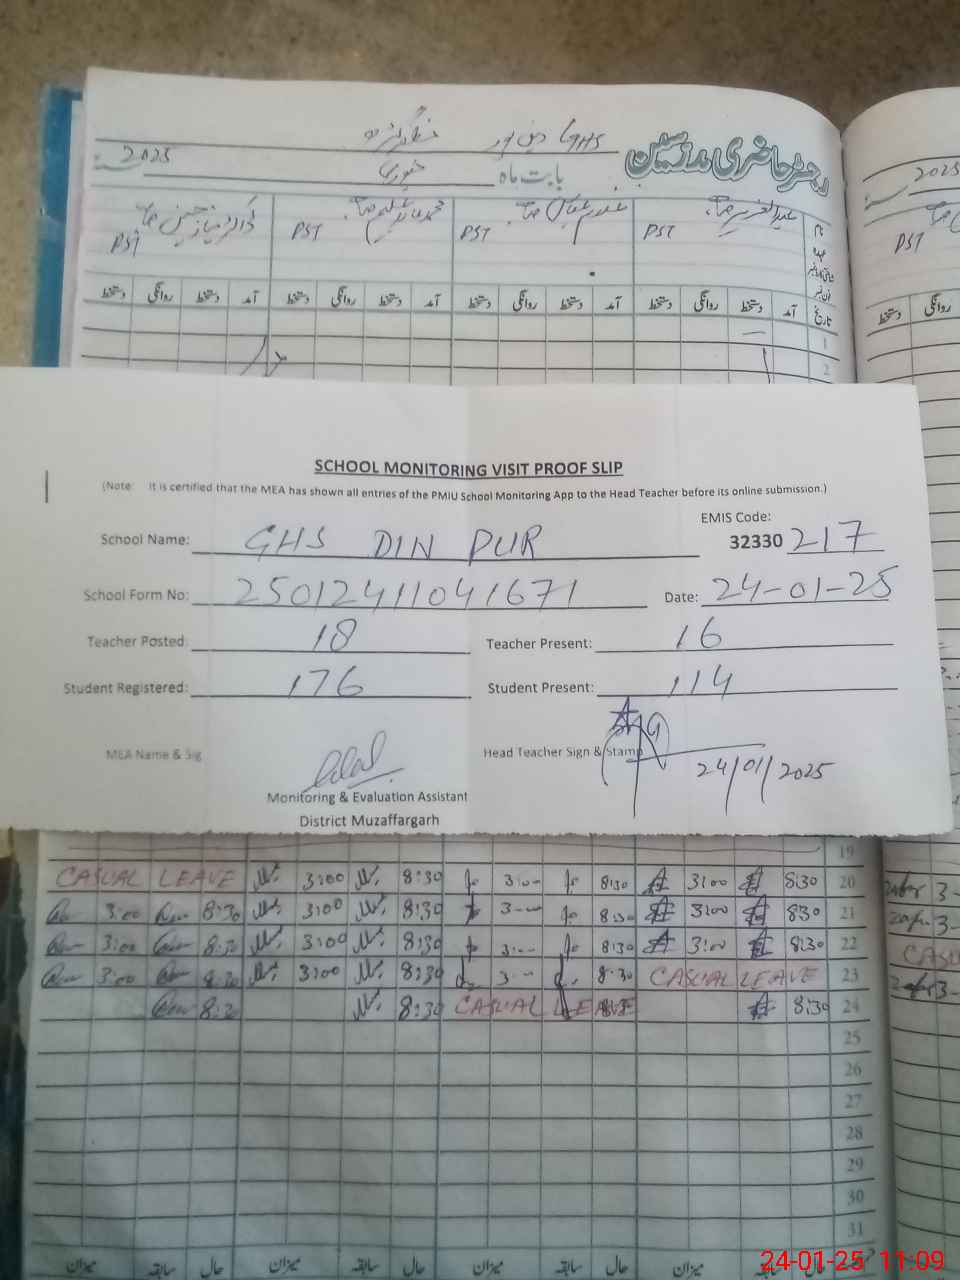 GHS دین پور مظفرگڑھ
رجسٹر حاضری مدرسین
بابت ماہ جنوری 2025 سنہ
2025
نام
عہدہ
PST PST PST PST
PST
تاریخ آمد دستخط روانگی دستخط آمد دستخط روانگی دستخط آمد دستخط روانگی دستخط آمد دستخط روانگی دستخط
روانگی دستخط
1
2
SCHOOL MONITORING VISIT PROOF SLIP
(Note: It is certified that the MEA has shown all entries of the PMIU School Monitoring App to the Head Teacher before its online submission.)
EMIS Code:
School Name: GHS DIN PUR 32330 217
School Form No: 25012411041671 Date: 24-01-25
Teacher Posted: 18 Teacher Present: 16
Student Registered: 176 Student Present: 114
MEA Name & Sig Head Teacher Sign & Stamp
24/01/2025
Monitoring & Evaluation Assistant
District Muzaffargarh
19
CASUAL LEAVE 3:00 8:30 3:00 8:30 3:00 8:30 20
3:00 8:30 3:00 8:30 3:00 8:30 3:00 8:30 21
3:00 8:30 3:00 8:30 3:00 8:30 3:00 8:30 22
3:00 8:30 3:00 8:30 3:00 8:30 CASUAL LEAVE 23
8:30 8:30 CASUAL LEAVE 8:30 24
25
26
27
28
29
30
31
حال سابقہ میزان حال سابقہ میزان حال سابقہ میزان حال سابقہ میزان
24-01-25 11:09